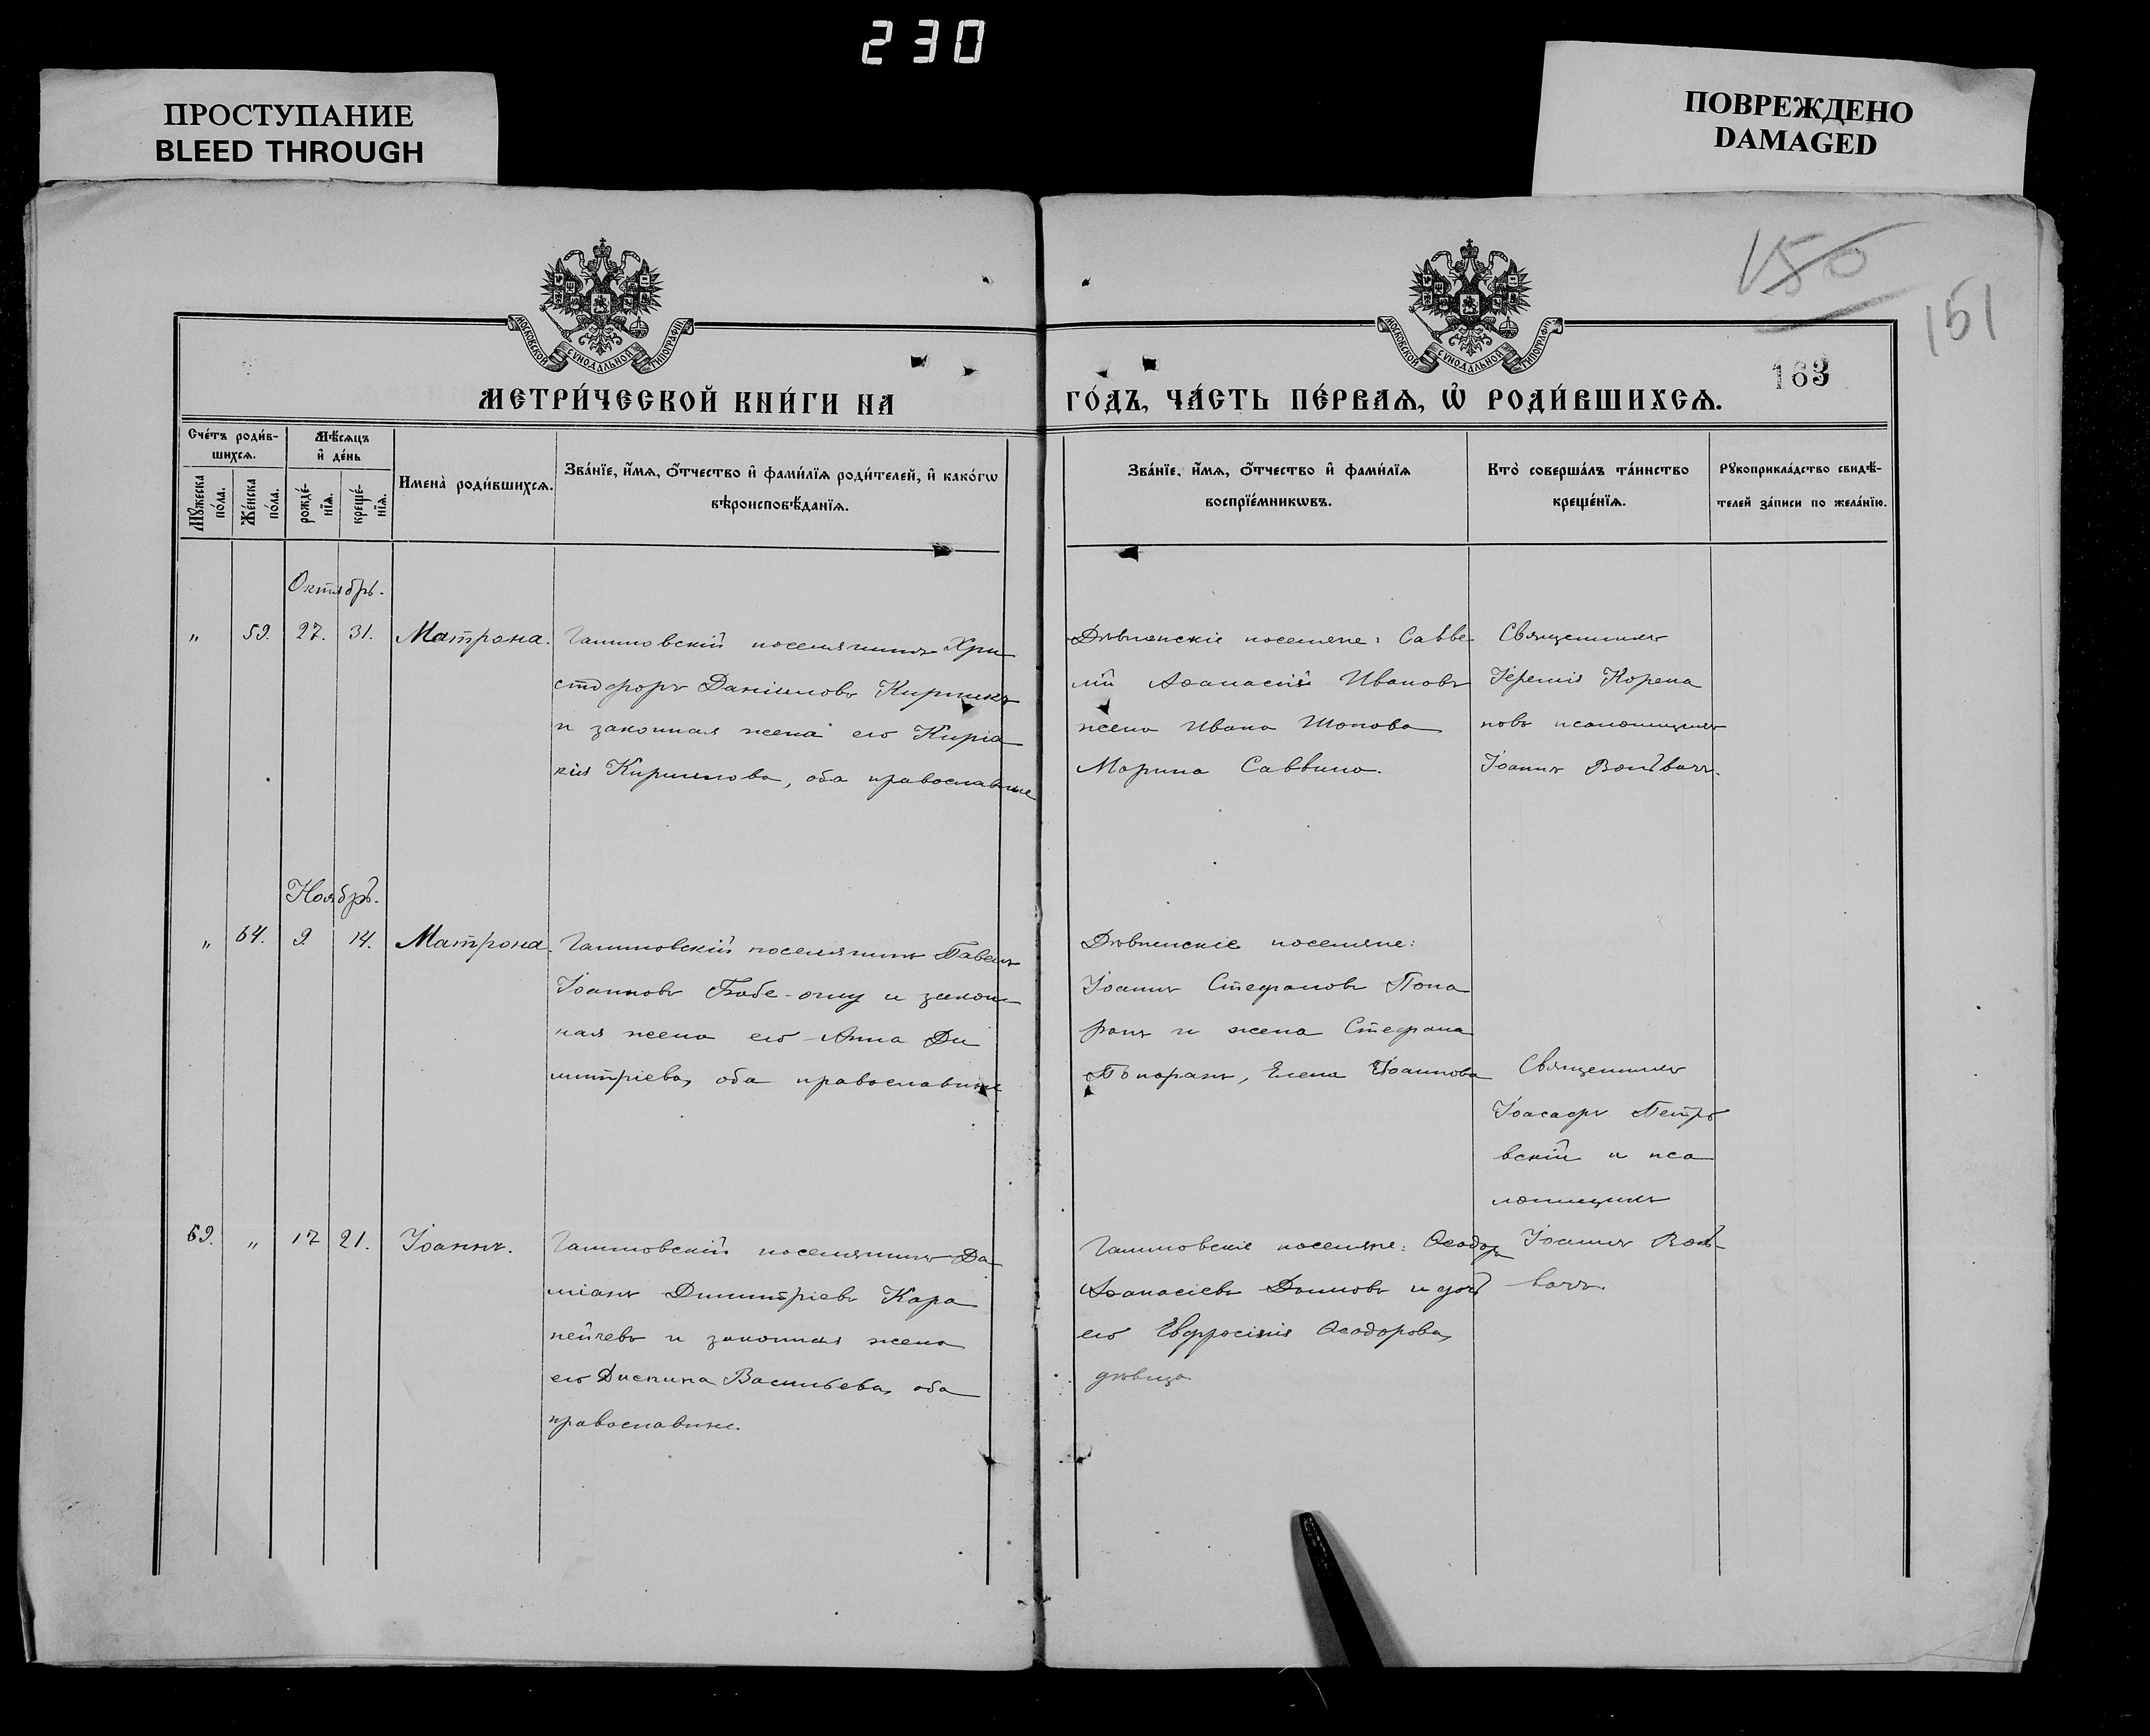 230
ПРОСТУПАНИЕ
BLEED THROUGH
ПОВРЕЖДЕНО
DAMAGED
150
151
163
МОСКОВСКОЙ СѴНОДАЛЬНОЙ ТИПОГРАФІИ
МОСКОВСКОЙ СѴНОДАЛЬНОЙ ТИПОГРАФІИ
МЕТРИ́ЧЕСКОЙ КНИ́ГИ НА
ГО́ДЪ, ЧА́СТЬ ПЕ́РВАѦ, Ѡ҆ РОДИ́ВШИХСѦ.
Сче́тъ роди́в-
шихсѧ.
Мꙋ́жеска
по́ла.
Же́нска
по́ла.
Мѣ́сѧцъ
и҆ де́нь
рожде́-
нїѧ.
креще́-
нїѧ.
И҆мена̀ роди́вшихсѧ.
Зва́нїе, и҆́мѧ, ѻ҆́тчество и҆ фами́лїѧ роди́телей, и҆ како́гѡ
вѣроисповѣ́данїѧ.
Зва́нїе, и҆́мѧ, ѻ҆́тчество и҆ фами́лїѧ
воспрїе́мникѡвъ.
Кто̀ соверша́лъ та́инство
креще́нїѧ.
Рꙋкоприкла́дство свидѣ́-
телей за́писи по жела́нїю.
Октябрь.
„ 59. 27. 31. Матрона.
поселянинъ Хри
стофоръ Данииловъ
и законная жена его Киріа
кія Кириллова, оба православные
поселяне: Савве
лій Аѳанасій Ивановъ
жена Ивана Шопова
Марина Саввина.
Священникъ
Іеремія Корепа
новъ псаломщикъ
Іоаннъ
Ноябрь.
„ 64. 9. 14. Матрона.
поселянинъ Павелъ
Іоанновъ Бабе-оглу и закон
ная жена его Анна Ди
митріева, оба православные
поселяне:
Іоаннъ Стефановъ Попа
занъ и жена Стефана
Елена Іоаннова
Священникъ
Іоасафъ Петро
вскій и пса
ломщикъ
Іоаннъ
69. „ 17 21. Іоаннъ.
поселянинъ Да
міанъ Димитріевъ Кара
пейчевъ и законная жена
его Деспина Васильева, оба
православные.
поселяне: Ѳеодоръ
Аѳанасіевъ и дочь
его Евфросинія Ѳеодорова,
дѣвица